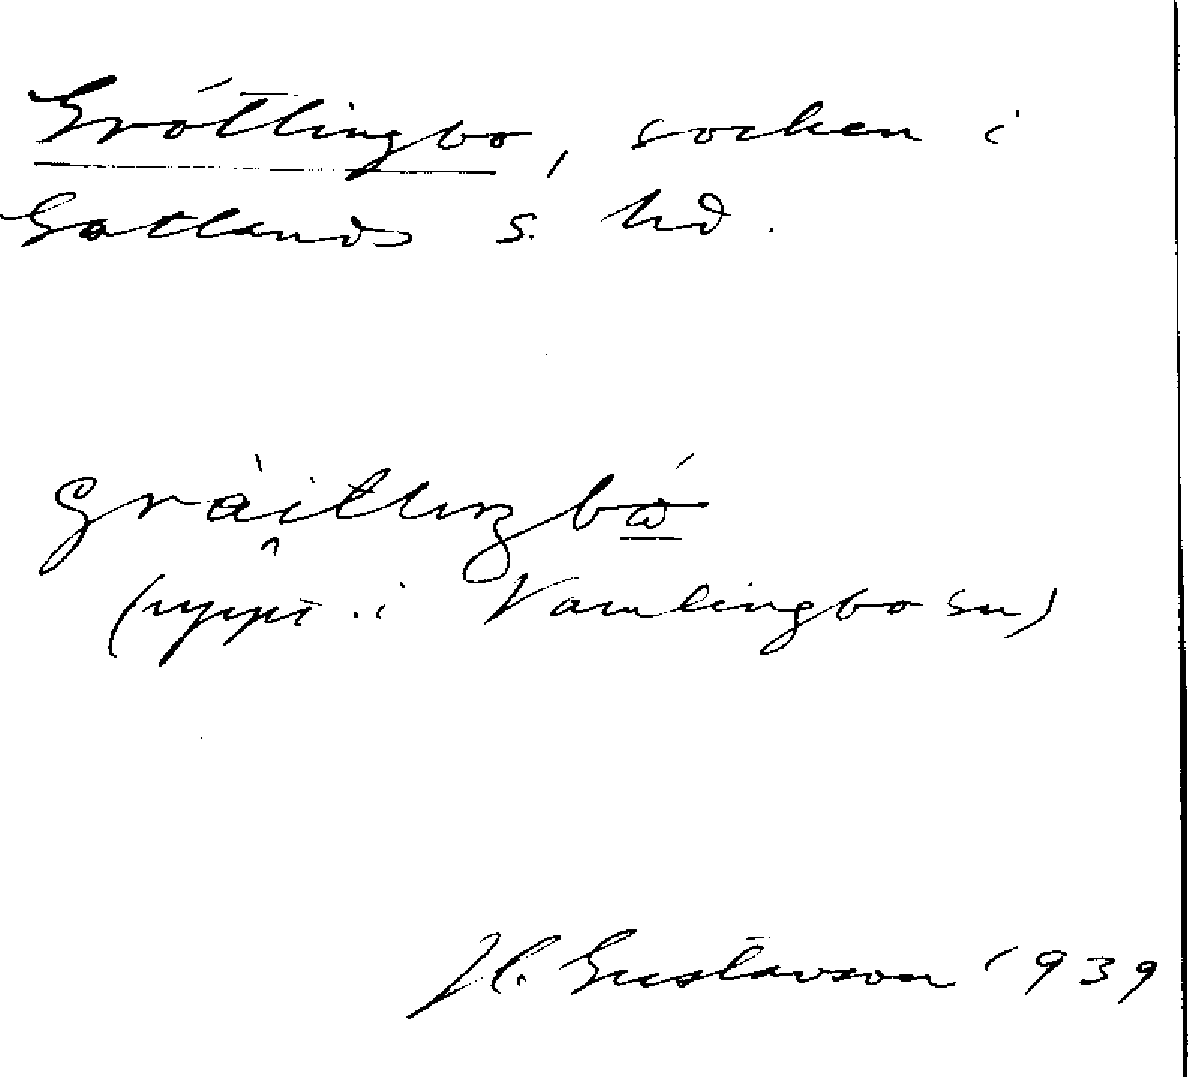 Grötlingbo, socken i
Gotlands s. hd.
grài̯tlıŋbó
(uppt. i Vamlingbo sn)
H. Gustavson 1939